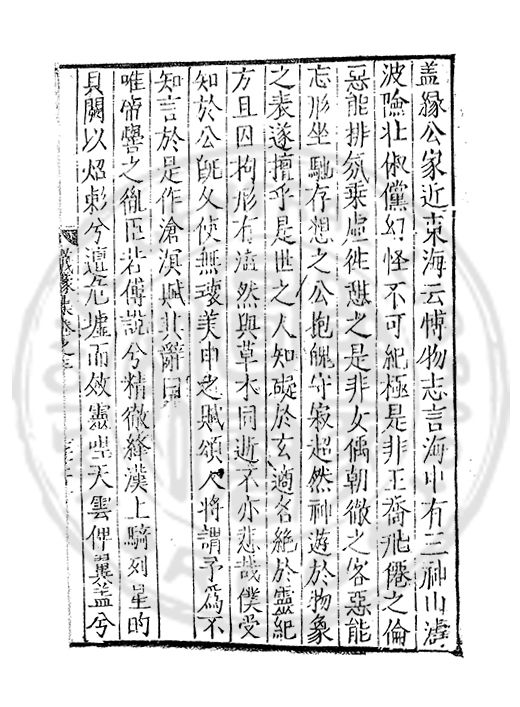 盖緣公家近東海云博物志言海中有三神山濤
波險壯俶儻幻怪不可紀極是非王喬飛僊之倫
惡能排氛乘虛徙憇之是非女偊朝徹之客惡能
忘形坐馳存想之公抱魄守寂超然神遊於物象
之表遂擅乎是世之人知礙於玄適名絕於靈紀
方且囚拘形有溘然與草木同逝不亦悲哉僕受
知於公旣久使無瓌美申之賦頌人將謂予爲不
知言於是作滄溟賦其辭曰
唯帝嚳之胤臣若傅說兮精徹絳漢上騎列星的
具闕以炤彰兮邅危墟而效靈堂天雲俾翼蓋兮
集卷之